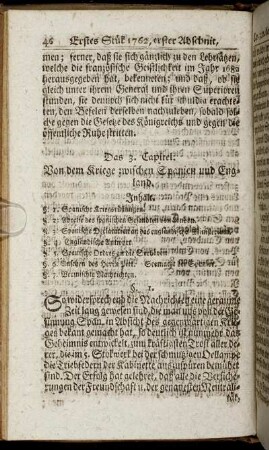 46 Erstes Stük 1762, erster Abschnit,
men; ferner, daß sie sich gänzlich zu den Lehrsätzen,
welche die französische Geistlichkeit im Jahr 1682
herausgegeben hat, bekenneten; und daß, ob sie
gleich unter ihrem General und ihren Superioren
stunden, sie dennoch sich nicht für schuldig erachte-
ten, den Befelen derselben nachzuleben, sobald sol-
che gegen die Geseze des Königreichs und gegen die
öffentliche Ruhe stritten.
Das 3. Capitel.
Von dem Kriege zwischen Spanien und Eng-
land.
Inhalt.
§. 1. Spanische
§. 2. Abreise des
§. 3. Spanische
§. 4. Engländische Antwort.
§. 5.
§. 6.
§. 7. Vermischte Nachrichten.
§. 1.
So widersprechend die Nachrichten eine geraume
Zeit lang gewesen sind, die man uns von der Ge-
sinnung Span. in Absicht des gegenwärtigen Krie-
ges bekant gemacht hat, so deutlich ist nunmehr das
Geheimnis entwickelt, zum kräftigsten Trost aller de-
rer, die im 5. Stokwerk bei der schmuzigen Oellampe
die Triebfedern der Kabinette auszuspüren bemühet
sind. Der Erfolg hat gelehret, daß alle die Versiche-
rungen der Freundschaft u. der genauesten Neutrali-
tät,